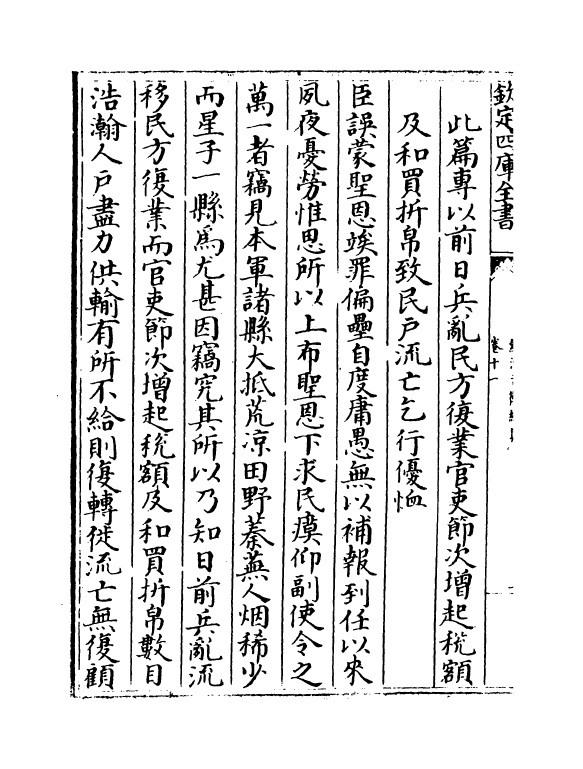 欽定四庫全書
卷十一
此篇專以前日兵亂民方復業官吏節次增起稅額
及和買折帛致民戶流亡乞行優恤
臣誤蒙聖恩竢罪偏壘自度庸愚無以補報到任以來
夙夜憂勞惟思所以上布聖恩下求民瘼仰副使令之
萬一者竊見本軍諸縣大抵荒凉田野蓁蕪人烟稀少
而星子一縣為尤甚因竊究其所以乃知日前兵亂流
移民方復業而官吏節次增起稅額及和買折帛數目
浩瀚人戶盡力供輸有所不給則復轉徙流亡無復顧